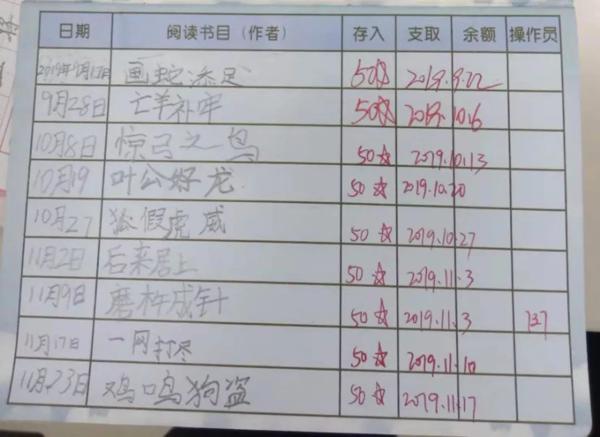 日期 阅读书目（作者） 存入 支取 余额 操作员
2019年9月17日 画蛇添足 50☆ 2019.9.22
9月28日 亡羊补牢 50☆ 2019.10.6
10月8日 惊弓之鸟 50☆ 2019.10.13
10月19 叶公好龙 50☆ 2019.10.20
10月27 狐假虎威 50☆ 2019.10.27
11月2日 后来居上 50☆ 2019.11.3
11月9日 磨杵成针 50☆ 2019.11.3 137
11月17日 一网打尽 50☆ 2019.11.10
11月23日 鸡鸣狗盗 50☆ 2019.11.17